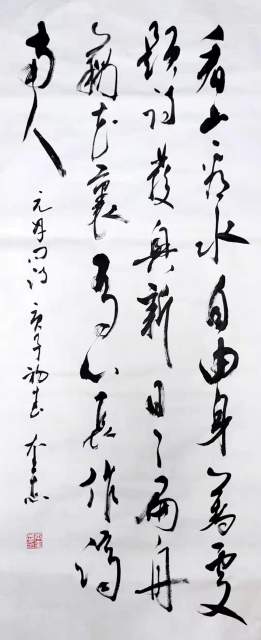 看山看水自由身著處
題詩發興新日日扁舟
藕花裏有心長作濟
南人
元好问诗 庚子初春